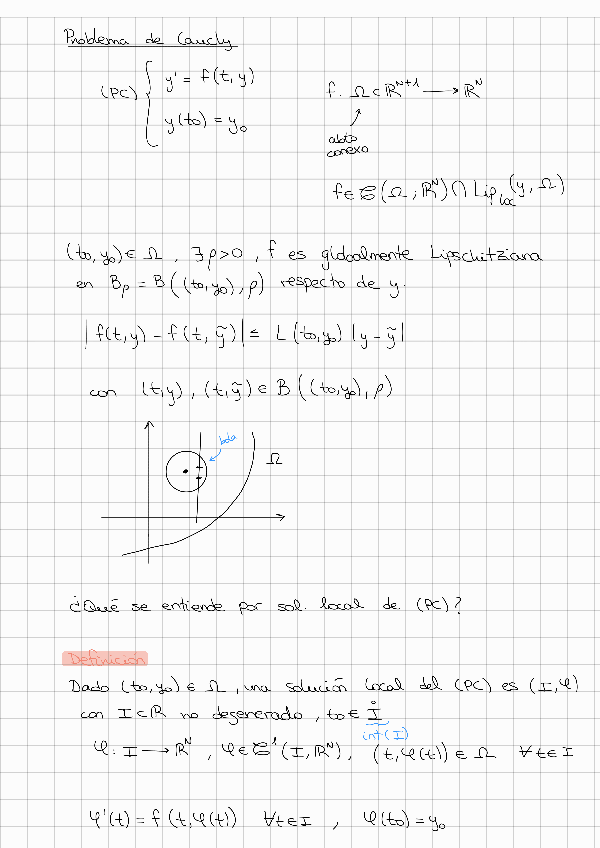 Problema de Cauchy
(PC) { y' = f(t, y)
y(t₀) = y₀
f: Ω ⊂ ℝᴺ⁺¹ ⟶ ℝᴺ
abto
conexo
f ∈ 𝒞(Ω; ℝᴺ) ∩ Lip_loc(y, Ω)
(t₀, y₀) ∈ Ω , ∃ ρ > 0 , f es globalmente Lipschitziana
en B_ρ = B((t₀, y₀), ρ) respecto de y.
|f(t, y) - f(t, ỹ)| ≤ L(t₀, y₀) |y - ỹ|
con (t, y), (t, ỹ) ∈ B((t₀, y₀), ρ)
bola
Ω
¿Qué se entiende por sol. local de (PC)?
Definicion
Dado (t₀, y₀) ∈ Ω, una solución local del (PC) es (I, φ)
con I ⊂ ℝ no degenerado, t₀ ∈ I̊
int(I)
φ: I ⟶ ℝᴺ , φ ∈ 𝒞¹(I, ℝᴺ), (t, φ(t)) ∈ Ω ∀t ∈ I
φ'(t) = f(t, φ(t)) ∀t ∈ I , φ(t₀) = y₀